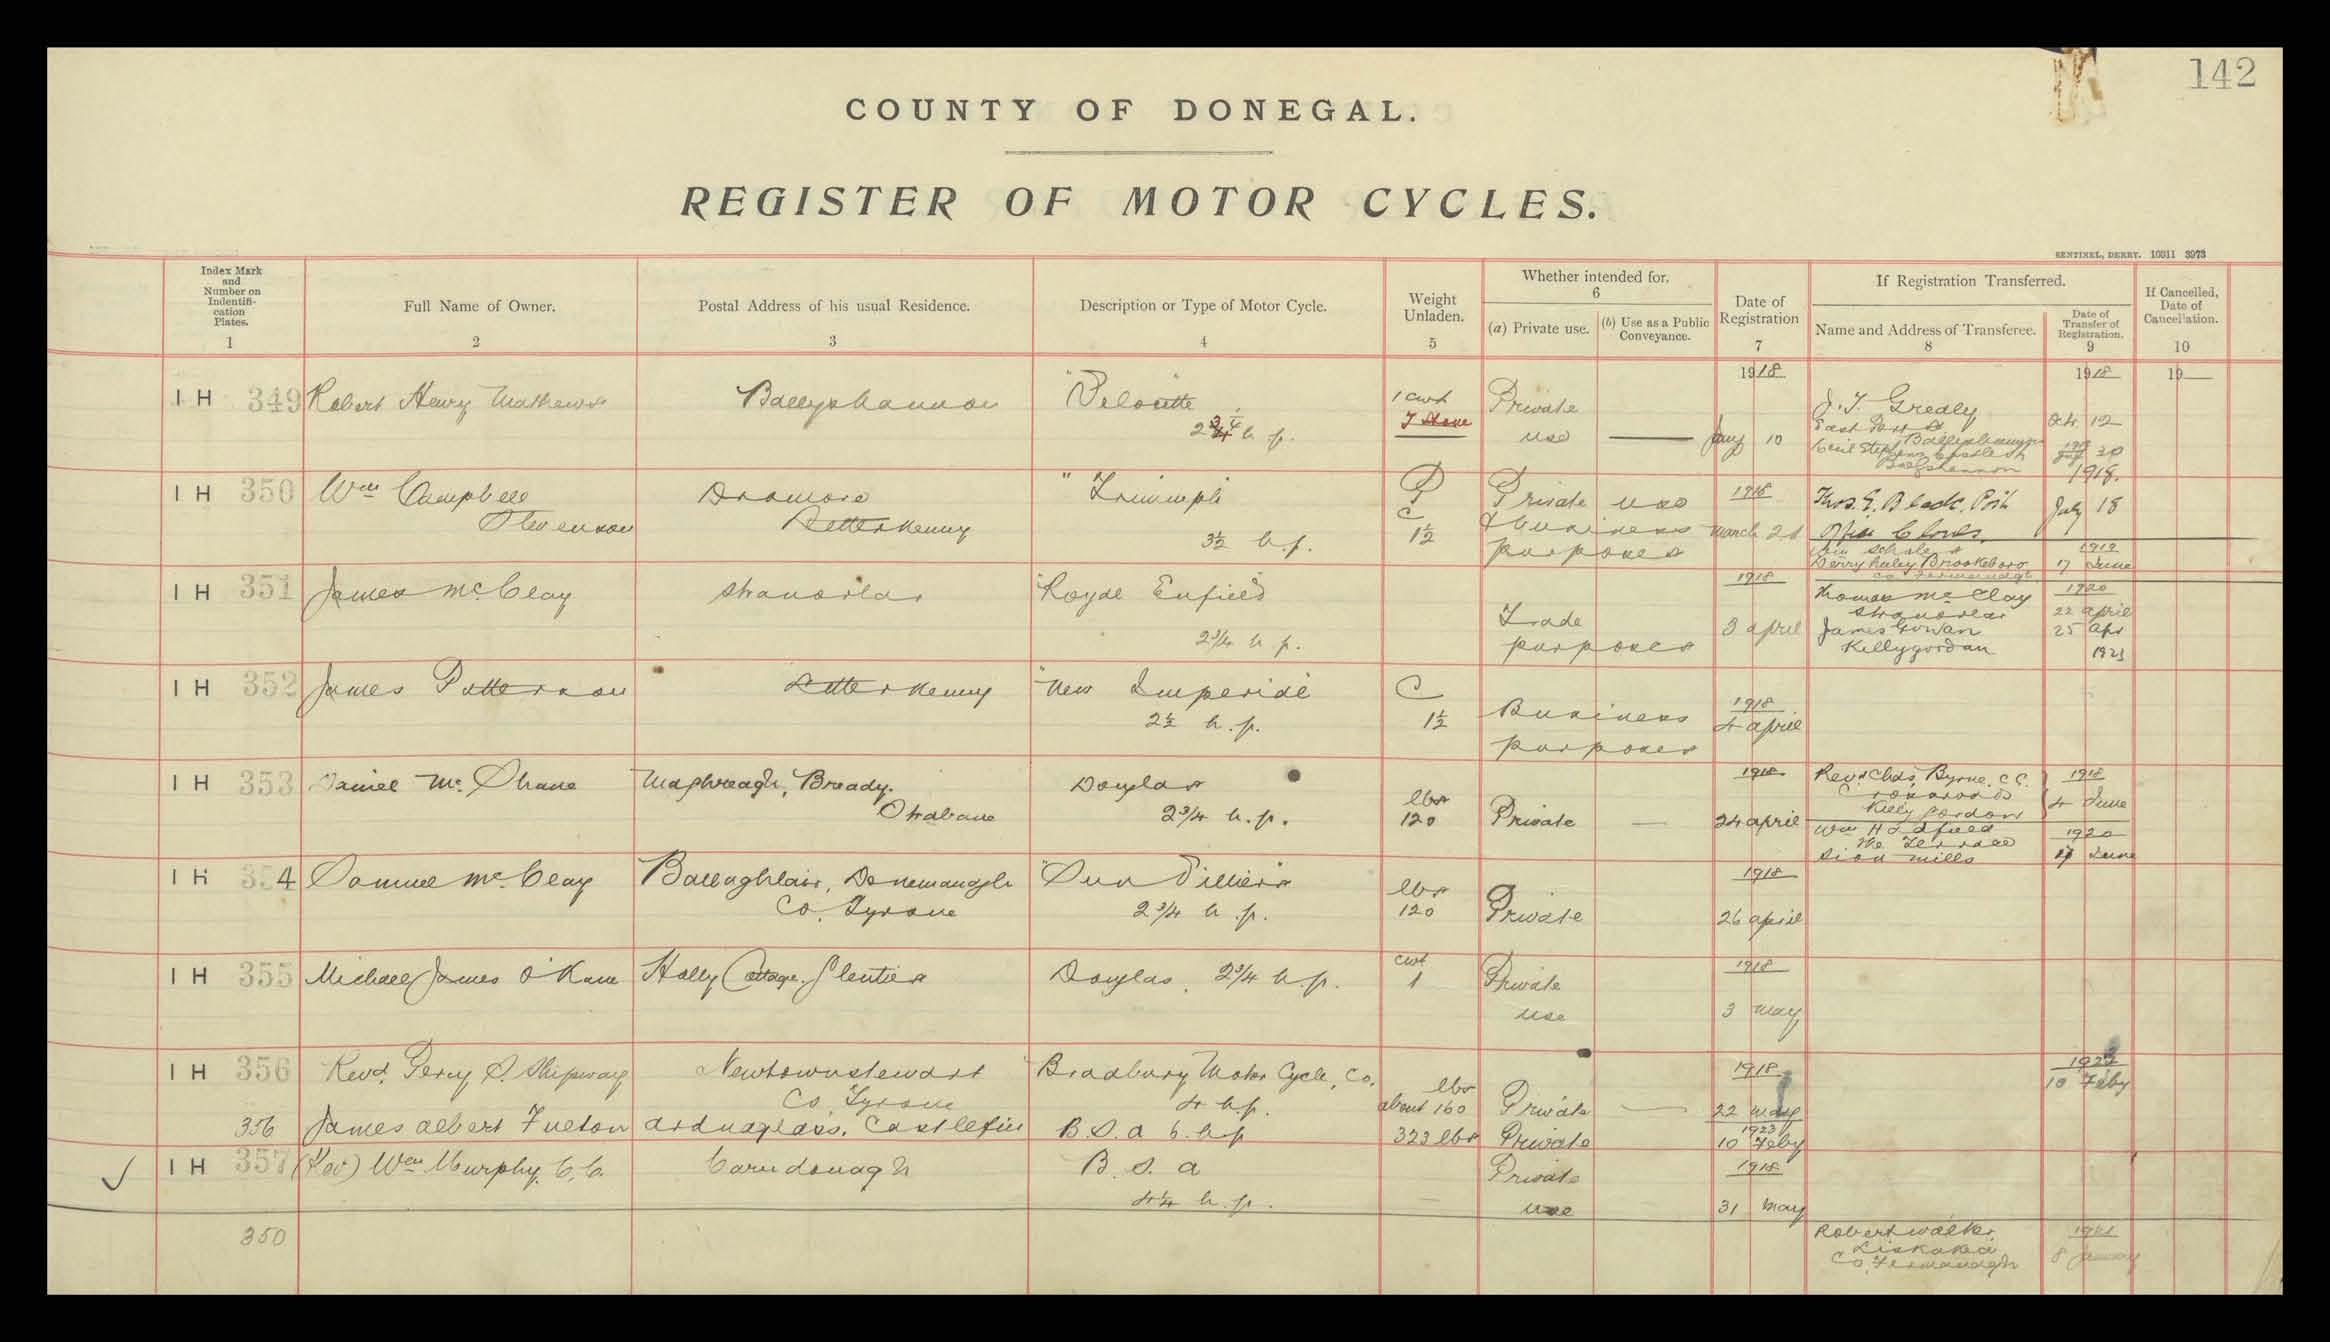 142
COUNTY OF DONEGAL.
REGISTER OF MOTOR CYCLES.
SENTINEL, DERRY. 10311 3973
Index Mark and Number on Indentifi-cation Plates. 1
Full Name of Owner. 2
Postal Address of his usual Residence. 3
Description or Type of Motor Cycle. 4
Weight Unladen. 5
Whether intended for. 6
(a) Private use.
(b) Use as a Public Conveyance.
Date of Registration 7
If Registration Transferred.
Name and Address of Transferee. 8
Date of Transfer of Registration. 9
If Cancelled, Date of Cancellation. 10
1918 1918 19
I H 349 Robert Henry Mathews Ballyshannon "Velocette" 1 cwt Private J. T. Gredly
2 h. p. 7 Stone use — Jany 10 East Port St Oct. 12
Ballyshannon
Cecil Stephens Castle St 30
Ballyshannon
1918.
I H 350 Wm Campbell Dromore "Triumph Private use 1918 Thos. G. Black, Post July 18
Stevenson Letterkenny 3½ h.p. C 1½ & business March 21 Office Clones.
purposes 1919
Derryheley Brookeboro 17 June
Co Fermanagh
I H 351 James McCleay Stranorlar "Royal Enfield 1918 Thomas McClay 1920
Stranorlar 22 April
2¾ h. p. Trade 3 April James Gowan 25 Apr
purposes Killygordan 1921
I H 352 James Patterson Letterkenny "New Imperial C 1918
2½ h. p. 1½ Business 4 April
purposes
I H 353 Daniel McShane Maghreagh, Bready. Douglas 1918 Revd Chas Byrne C C. 1918
Strabane 2¾ h. p. lbs 120 Private — 24 April 4 June
Killygordon
Wm Hadfield 1920
The Terrace June
Sion Mills
I H 354 Samuel McCleay Ballaghlair, Donemanagh "Sun Villiers lbs 1918
Co. Tyrone 2¾ h. p. 120 Private 26 April
I H 355 Michael James O'Kane Holly Cottage, Glenties Douglas, 2¾ h. p. cwt 1 Private 1918
use 3 May
I H 356 Revd. Percy S. Shipway Newtownstewart Bradbury Motor Cycle, Co. 1918 1923
Co. Tyrone 4 h.p. lbs about 160 Private — 22 May 10 Feby
356 James Albert Fulton Ardnaglass, Castlefin B. S. A 6. h.p 323 lbs Private 1923 10 Feby
I H 357 (Rev) Wm Murphy, C. C. Carndonagh B. S. A Private 1918
4¼ h. p. — use 31 May
350 Robert Walker, 1921
Co, Fermanagh 8 January